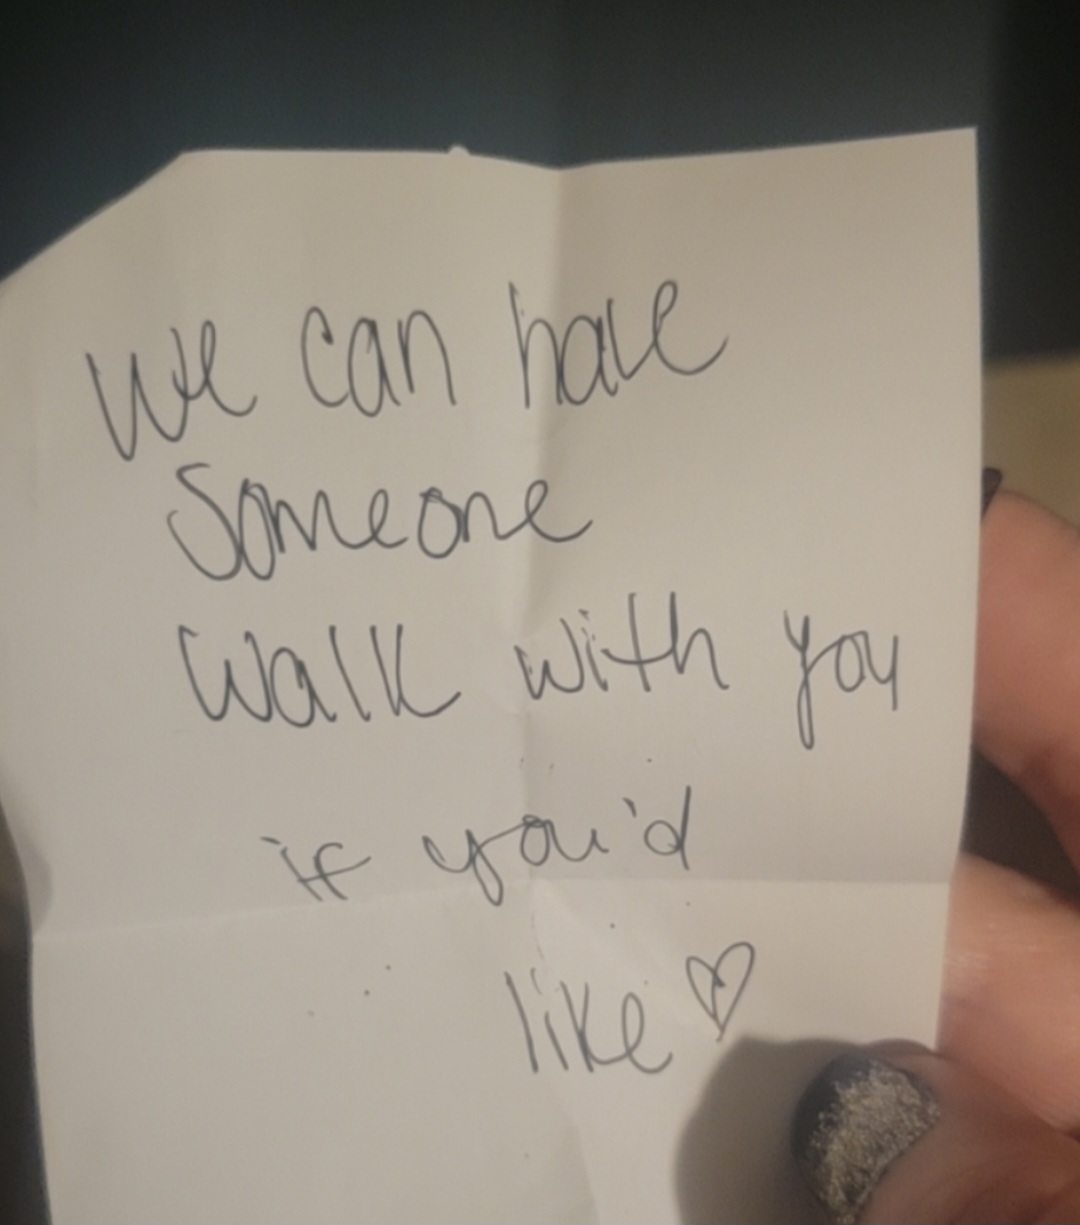 We can have
Someone
Walk with you
if you'd
like ♡